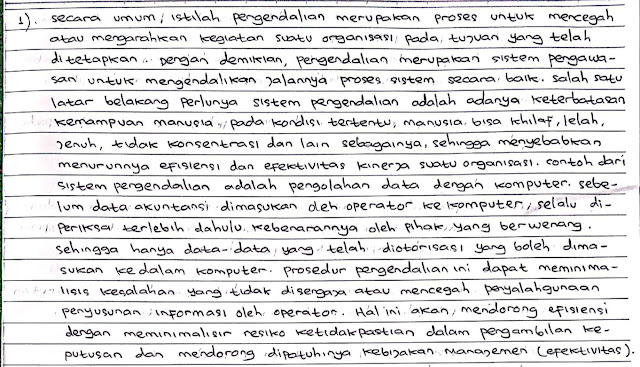 1). secara umum, istilah pengendalian merupakan proses untuk mencegah
atau mengarahkan kegiatan suatu organisasi pada tujuan yang telah
ditetapkan. Dengan demikian, pengendalian merupakan sistem pengawa-
san untuk mengendalikan jalannya proses sistem secara baik. salah satu
latar belakang perlunya sistem pengendalian adalah adanya keterbatasan
kemampuan manusia, pada kondisi tertentu, manusia bisa khilaf, lelah,
jenuh, tidak konsentrasi dan lain sebagainya, sehingga menyebabkan
menurunnya efisiensi dan efektivitas kinerja suatu organisasi. contoh dari
sistem pengendalian adalah pengolahan data dengan komputer. sebe-
lum data akuntansi dimasukan oleh operator ke komputer, selalu di-
periksa terlebih dahulu kebenarannya oleh pihak yang berwenang.
sehingga hanya data-data yang telah diotorisasi yang boleh dima-
sukan kedalam komputer. prosedur pengendalian ini dapat meminima-
lisis kesalahan yang tidak disengaja atau mencegah penyalahgunaan
penyusunan informasi oleh operator. Hal ini akan, mendorong efisiensi
dengan meminimalisir resiko ketidakpastian dalam pengambilan ke-
putusan dan mendorong dipatuhinya kebijakan manajemen (efektivitas).